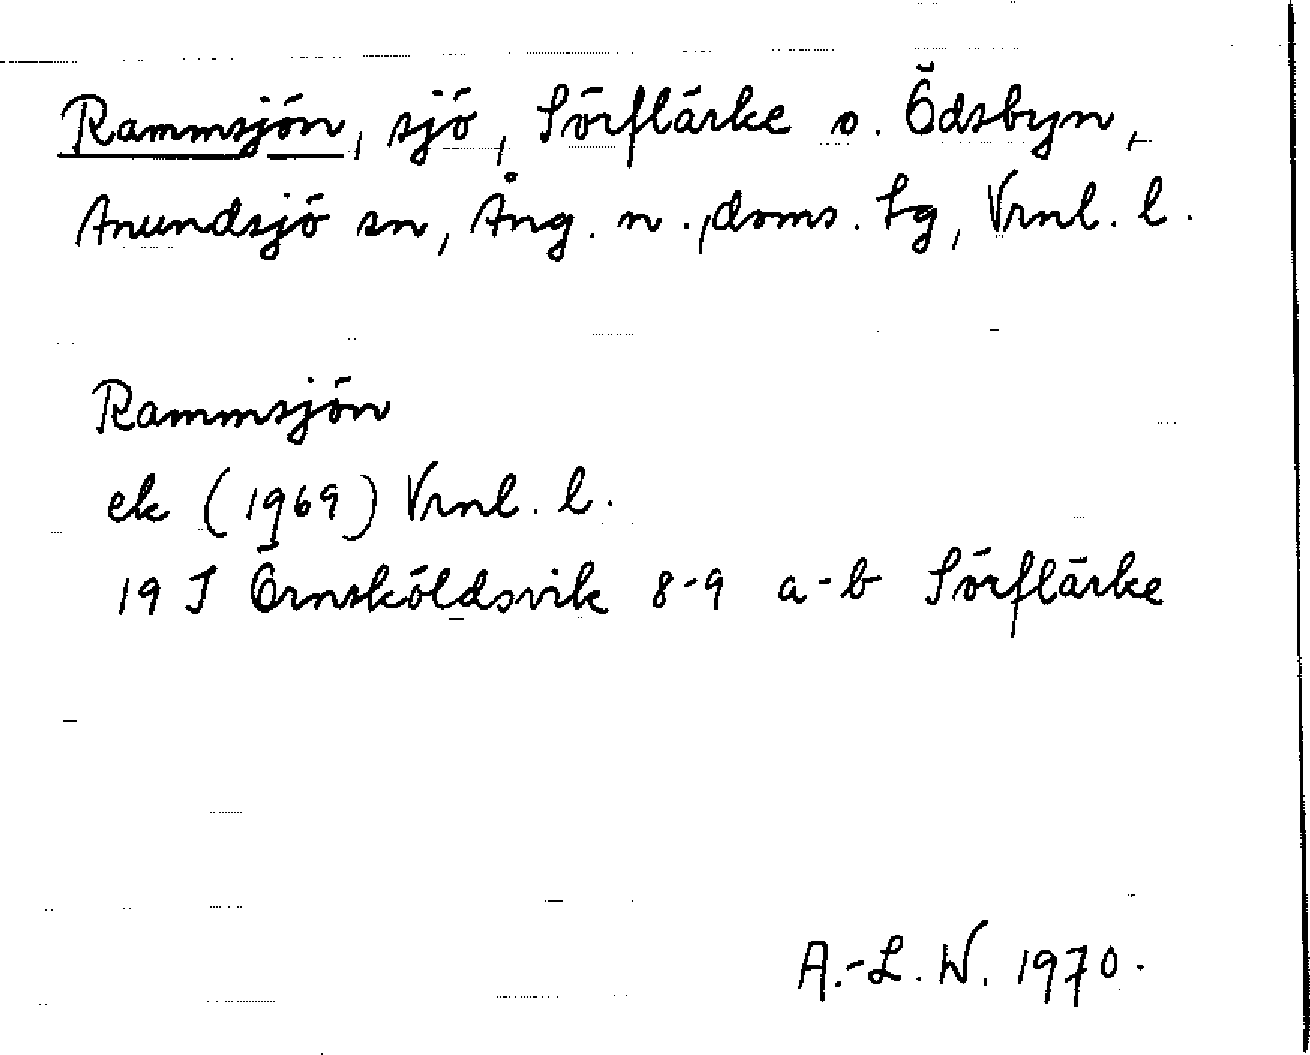 Rammsjön, sjö, Sörflärke o. Ödsbyn,
Anundsjö sn, Ång. n., doms. Lg, Vrnl. l.
Rammsjön
ek (1969) Vrnl. l.
19 J Örnsköldsvik 8-9 a-b Sörflärke
A.-L. W. 1970.